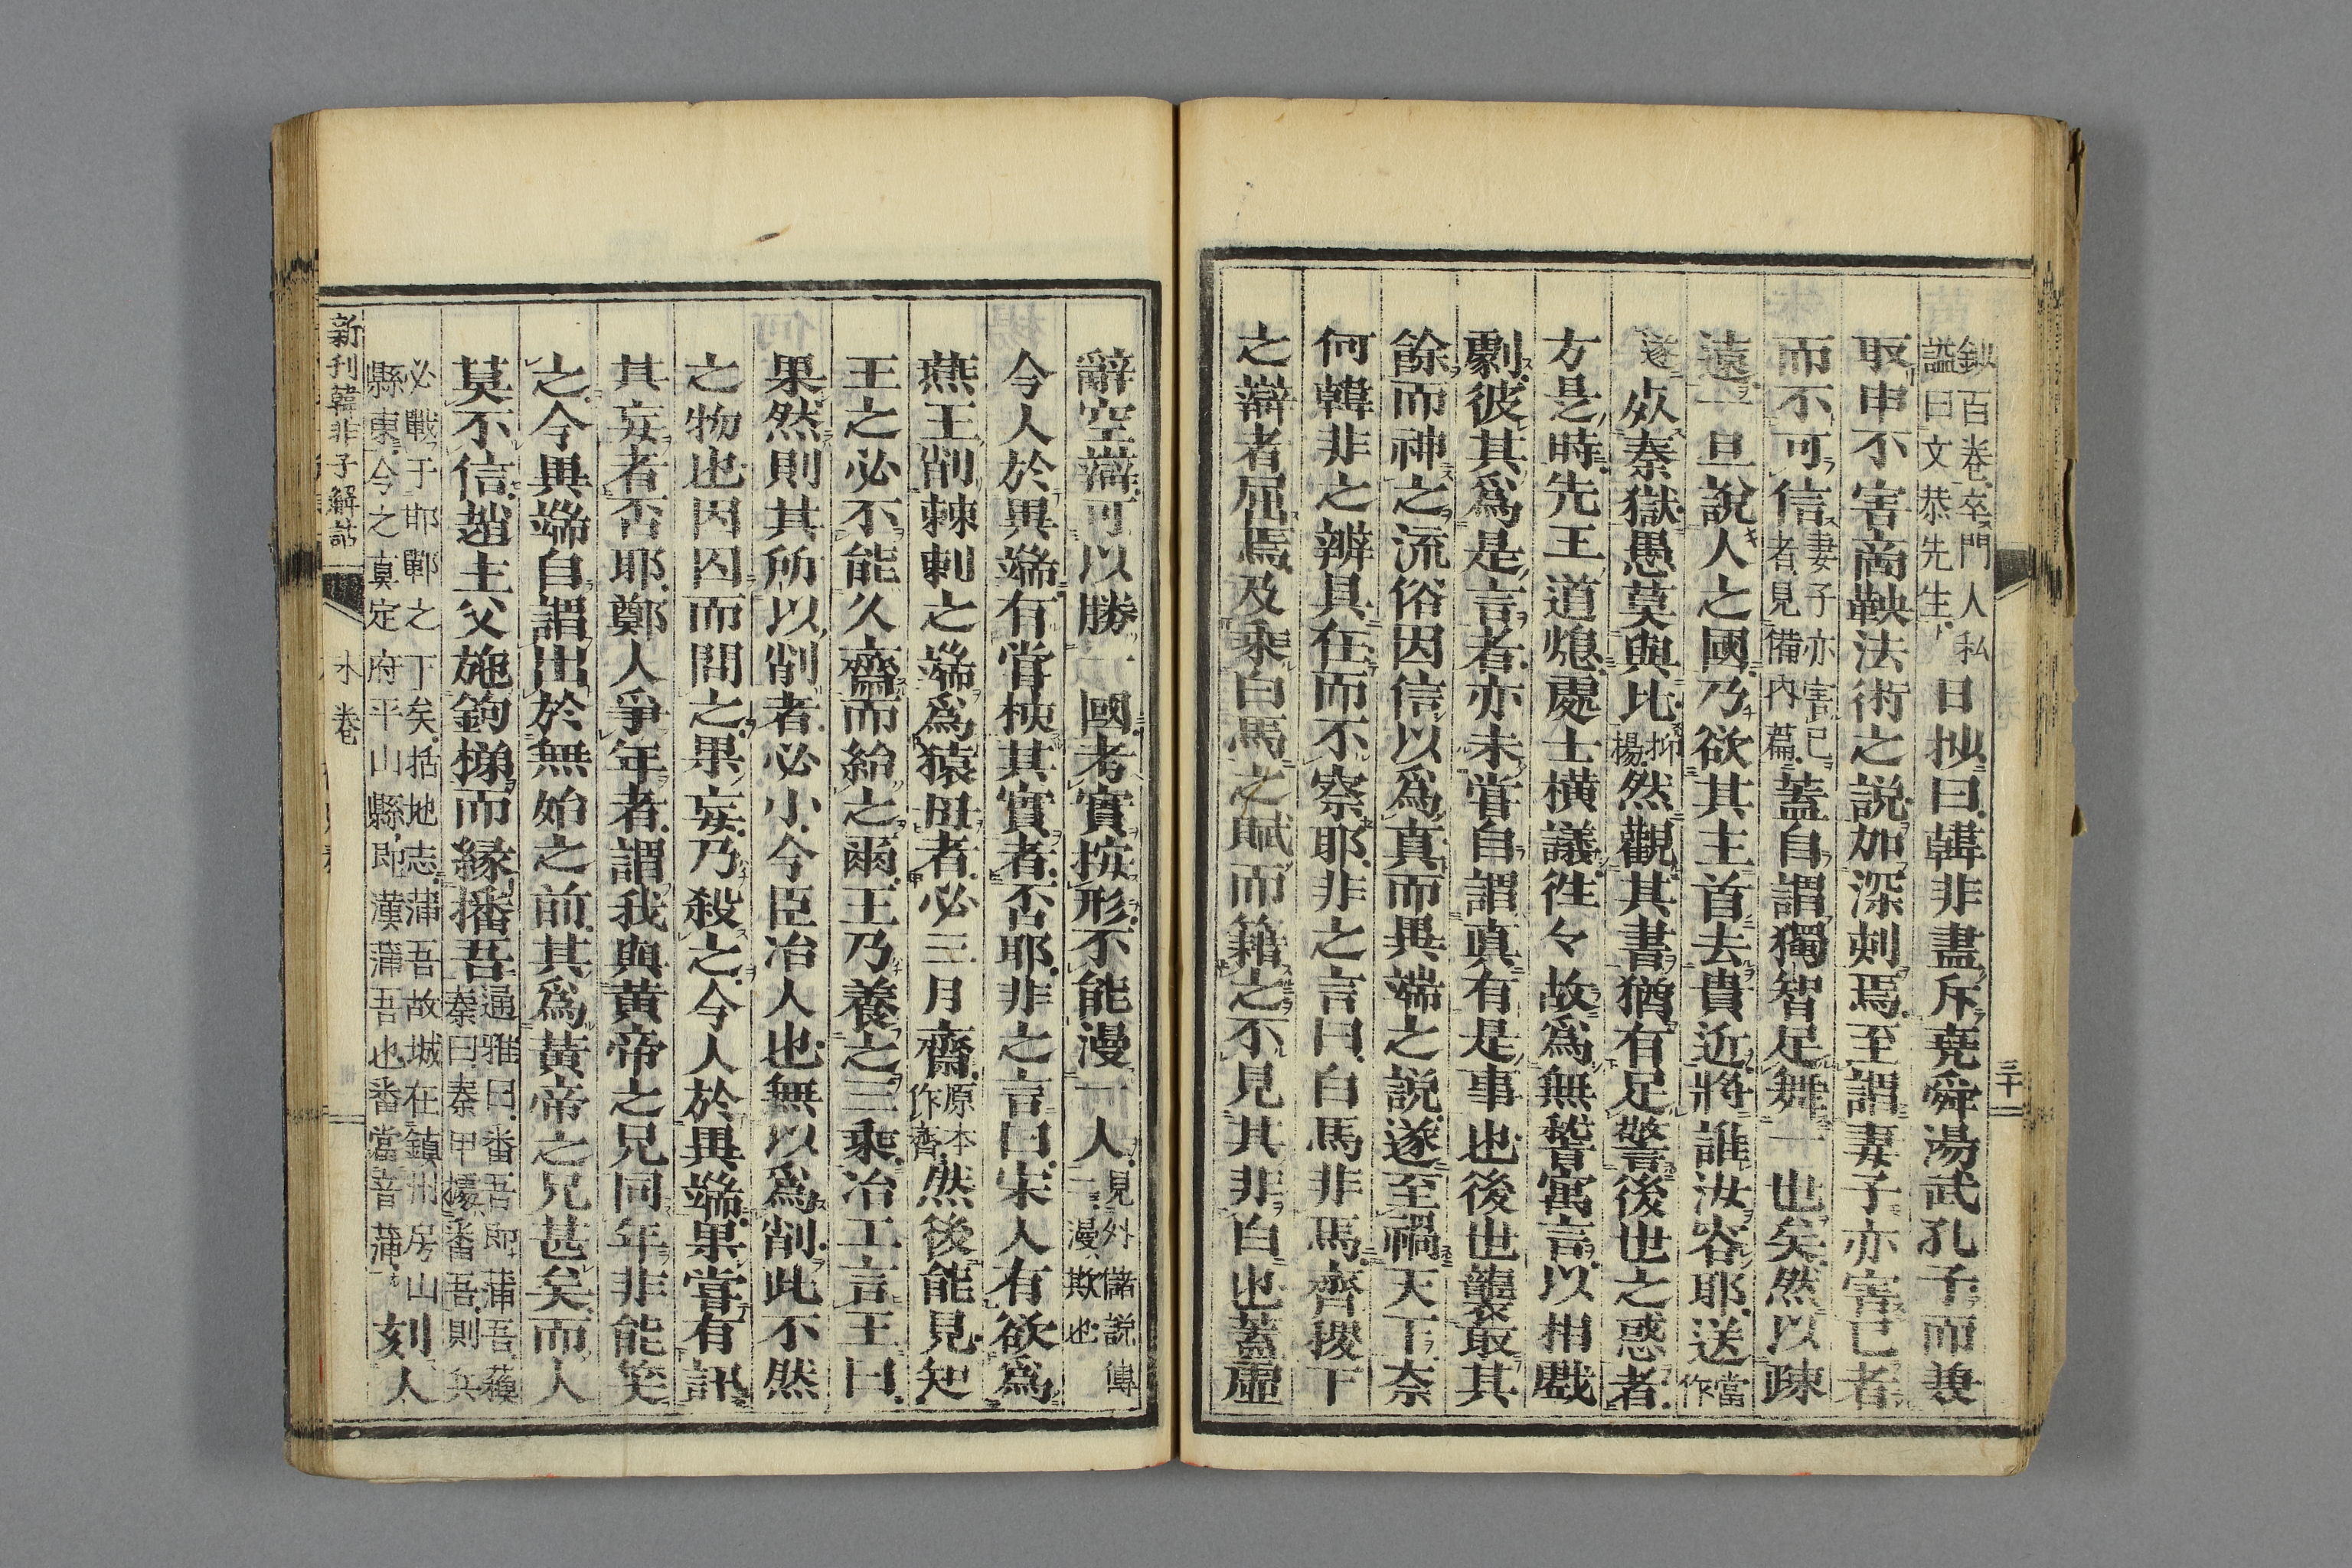 鈔百卷卒門人私
諡曰文恭先生
日抄曰韓非盡斥堯舜湯武孔子而兼
取申不害商鞅法術之説加深刻焉至謂妻子亦害己者
而不可信
妻子亦害己
者見備内篇
蓋自謂獨智足舞一也矣然以疎
遠一旦說人之國乃欲其主首去貴近將誰汝容耶送
當
作
遂
炊秦獄愚莫與比
抑
揚
然觀其書猶有足警後世之惑者
方是時先王道熄處士橫議徃々故爲無誓寓言以相戲
劇彼其爲是言者亦未甞自謂眞有是事也後世襲取其
餘而神之流俗因信以爲真而異端之説遂至禍天下奈
何韓非之辨具在而不察耶非之言曰白馬非馬齊稷下
之辯者屈焉及乘白馬之賦而籍之不見其非白也蓋虛
辭空辯可以勝一國考實按形不能漫一人
見外儲說傳
一漫欺也
今人於異端有甞核其實者否耶非之言曰宋人有欲爲
燕王削棘刺之端爲猿母者必三月齋
原本
作齊
然後能見知
王之必不能久齋而紿之爾王乃養之三乘冶工言王曰
果然則其所以削者必小今臣冶人也無以爲削此不然
之物也因囚而問之果妄乃殺之今人於異端果甞有訊
其妄者否耶鄭人爭年者謂我與黄帝之兄同年非能笑
之今異端自謂出於無始之前其爲黄帝之兄甚矣而人
莫不信趙主父施鉤梯而緣播吾
通雅曰番吾即蒲吾蘇
秦曰秦甲擾番吾則兵
必戰于邯鄲之下矣括地志蒲吾故城在鎭州房山
縣東今之真定府平山縣即漢蒲吾也番當音蒲
刻人
新刊韓非子解詁
卷
三十一